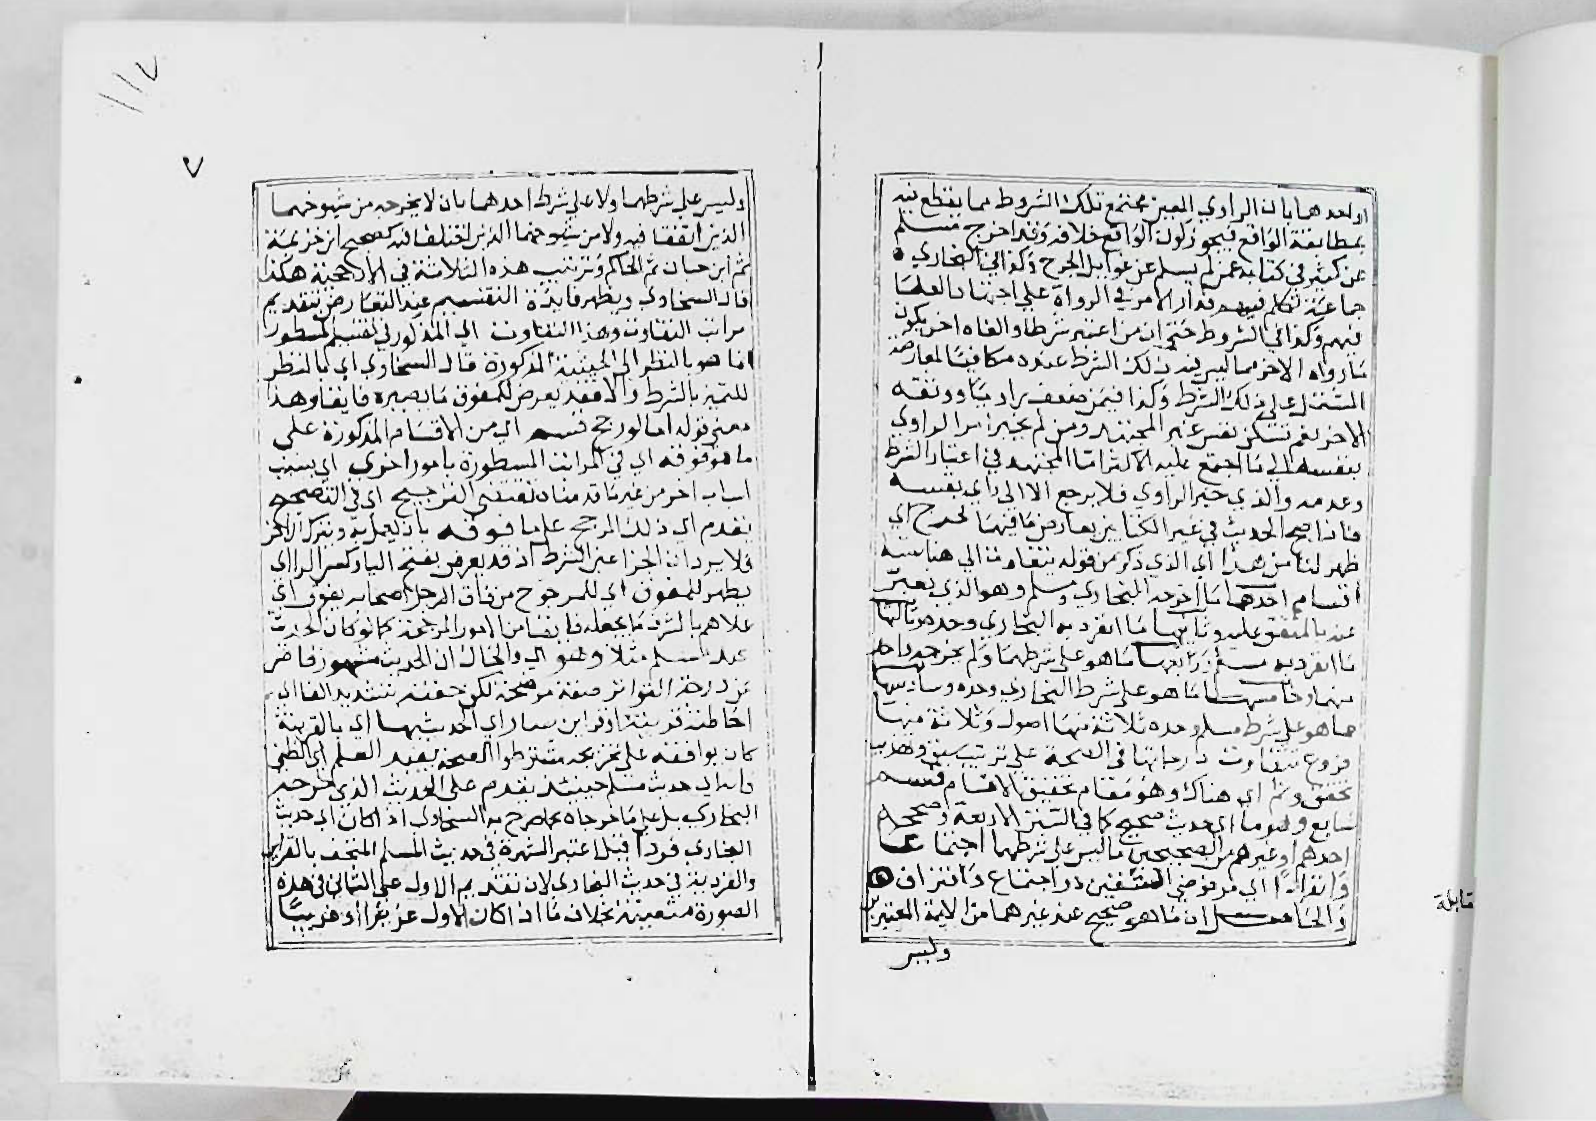 او احدهما بان الراوي المعين مجتمع تلك الشروط مما يقطع فيه
بمطابقة الواقع فيجوز كون الواقع خلافه وقد اخرج مسلم
عن كثير في كتابه عمن لم يسلم عن غوايل الجرح وكذا في البخاري
جماعة تكلم فيهم فدار الامر في الرواة علي اجتهاد العلما
فيهم وكذا في الشروط حتي ان من اعتبر شرطا والغاه اخر يكون
ما رواه الاخر مما ليس فيه ذلك الشرط عنده مكافيا لمعارضة
المشتمل علي ذلك الشرط وكذا فيمن ضعف راويا ووثقه
الاخر نعم تسكن نفس غير المجتهد ومن لم يخبر امر الراوي
بنفسه الي ما اجتمع عليه الاكثر اما المجتهد في اعتبار الشرط
وعدمه والذي خبر الراوي فلا يرجع الا الي راي نفسه
فاذا صح الحديث في غير الكتابين يعارض ما فيهما لخرج اي
ظهر لنا من هذا اي الذي ذكر من قوله يتفاوت الي هنا ستة
اقسام احدها ما اخرجه البخاري ومسلم وهو الذي يعبر
عنه بالمتفق عليه وثانيها ما انفرد به البخاري وحده وثالثها
ما انفرد به مسلم ورابعها ما هو علي شرطهما ولم يخرجه واحد
منهما وخامسها ما هو علي شرط البخاري وحده وسادسها
ما هو علي شرط مسلم وحده ثلاثة منها اصول وثلاثة منها
فروع تتفاوت درجاتها في الصحة علي ترتيب سبق وتهذيب
تحقق وثم اي هناك وهو مقام تحقيق الاقسام قسم
سابع وهو ما اي حديث صحيح كما في السنن الاربعة وصححه
احدهم او غيرهم من الصحيحين ما ليس علي شرطهما اجتماعا
وانفرادا اي مرفوضي الشقين در اجتماع وافتراق
والحاصل ان ما هو صحيح عند غيرهما من الايمة المعتبرين
وليس
قابلة
١١٧
٧
وليس علي شرطهما ولا علي شرط احدهما بان لا يخرجه من شيوخهما
الذين اتفقا فيه ولا من شيوخهما الذين اختلفا فيه كصحيح ابن خزيمة
ثم ابن حبان ثم الحاكم وترتيب هذه الثلاثة في الارجحية هكذا
قال السخاوي ويظهر فايدة التقسيم عند التعارض بتقديم
مراتب التفاوت وهذا التفاوت اي المذكور في تقسيم المسطور
انما هو بالنظر الي الحيثية المذكورة قال السخاوي اي بالنظر
للتميز بالشرط والا فقد يعرض للمفوق ما يصيره فايقا وهذا
معني قوله اما لو رجح قسم اي من الاقسام المذكورة علي
ما هو فوقه اي في المراتب المسطورة بامور اخري اي بسبب
اسباب اخر من غير ما قدمناه تقتضي الترجيح اي في التصحيح
يقدم اي ذلك المرجح علي ما فوقه بان يعمل به ويترك الاخر
فلا يرد ان الجزا عين الشرط اذ قد يعرض بفتح اليا وكسر الرا اي
يظهر للمفوق اي للمرجوح من فاق الرجل اصحابه يفوق اي
علاهم بالشرف ما يجعله فايقا من الامور المرجحة كما لو كان الحديث
عند مسلم مثلا وهو اي والحال ان الحديث مشهور قاصر
عن درجة التواتر صفة موضحة لكن حفته بتشديد الفا اي
احاطته قرينة اوقرابن صار اي الحديث بها اي بالقرينة
كان يوافقه علي تخريجه مشترطوا الصحة يفيد العلم اي الظني
فانه اي حديث مسلم حينئذ يقدم علي الحديث الذي يخرجه
البخاري بل علي ما خرجاه كما صرح به السخاوي اذا كان اي حديث
البخاري فردا قيل اعتبر الشهرة في حديث المسلم المتحف بالقراين
والفردية في حديث البخاري لان تقديم الاول علي الثاني في هذه
الصورة متعينة بخلاف ما اذا كان الاول عزيزا او غريبا